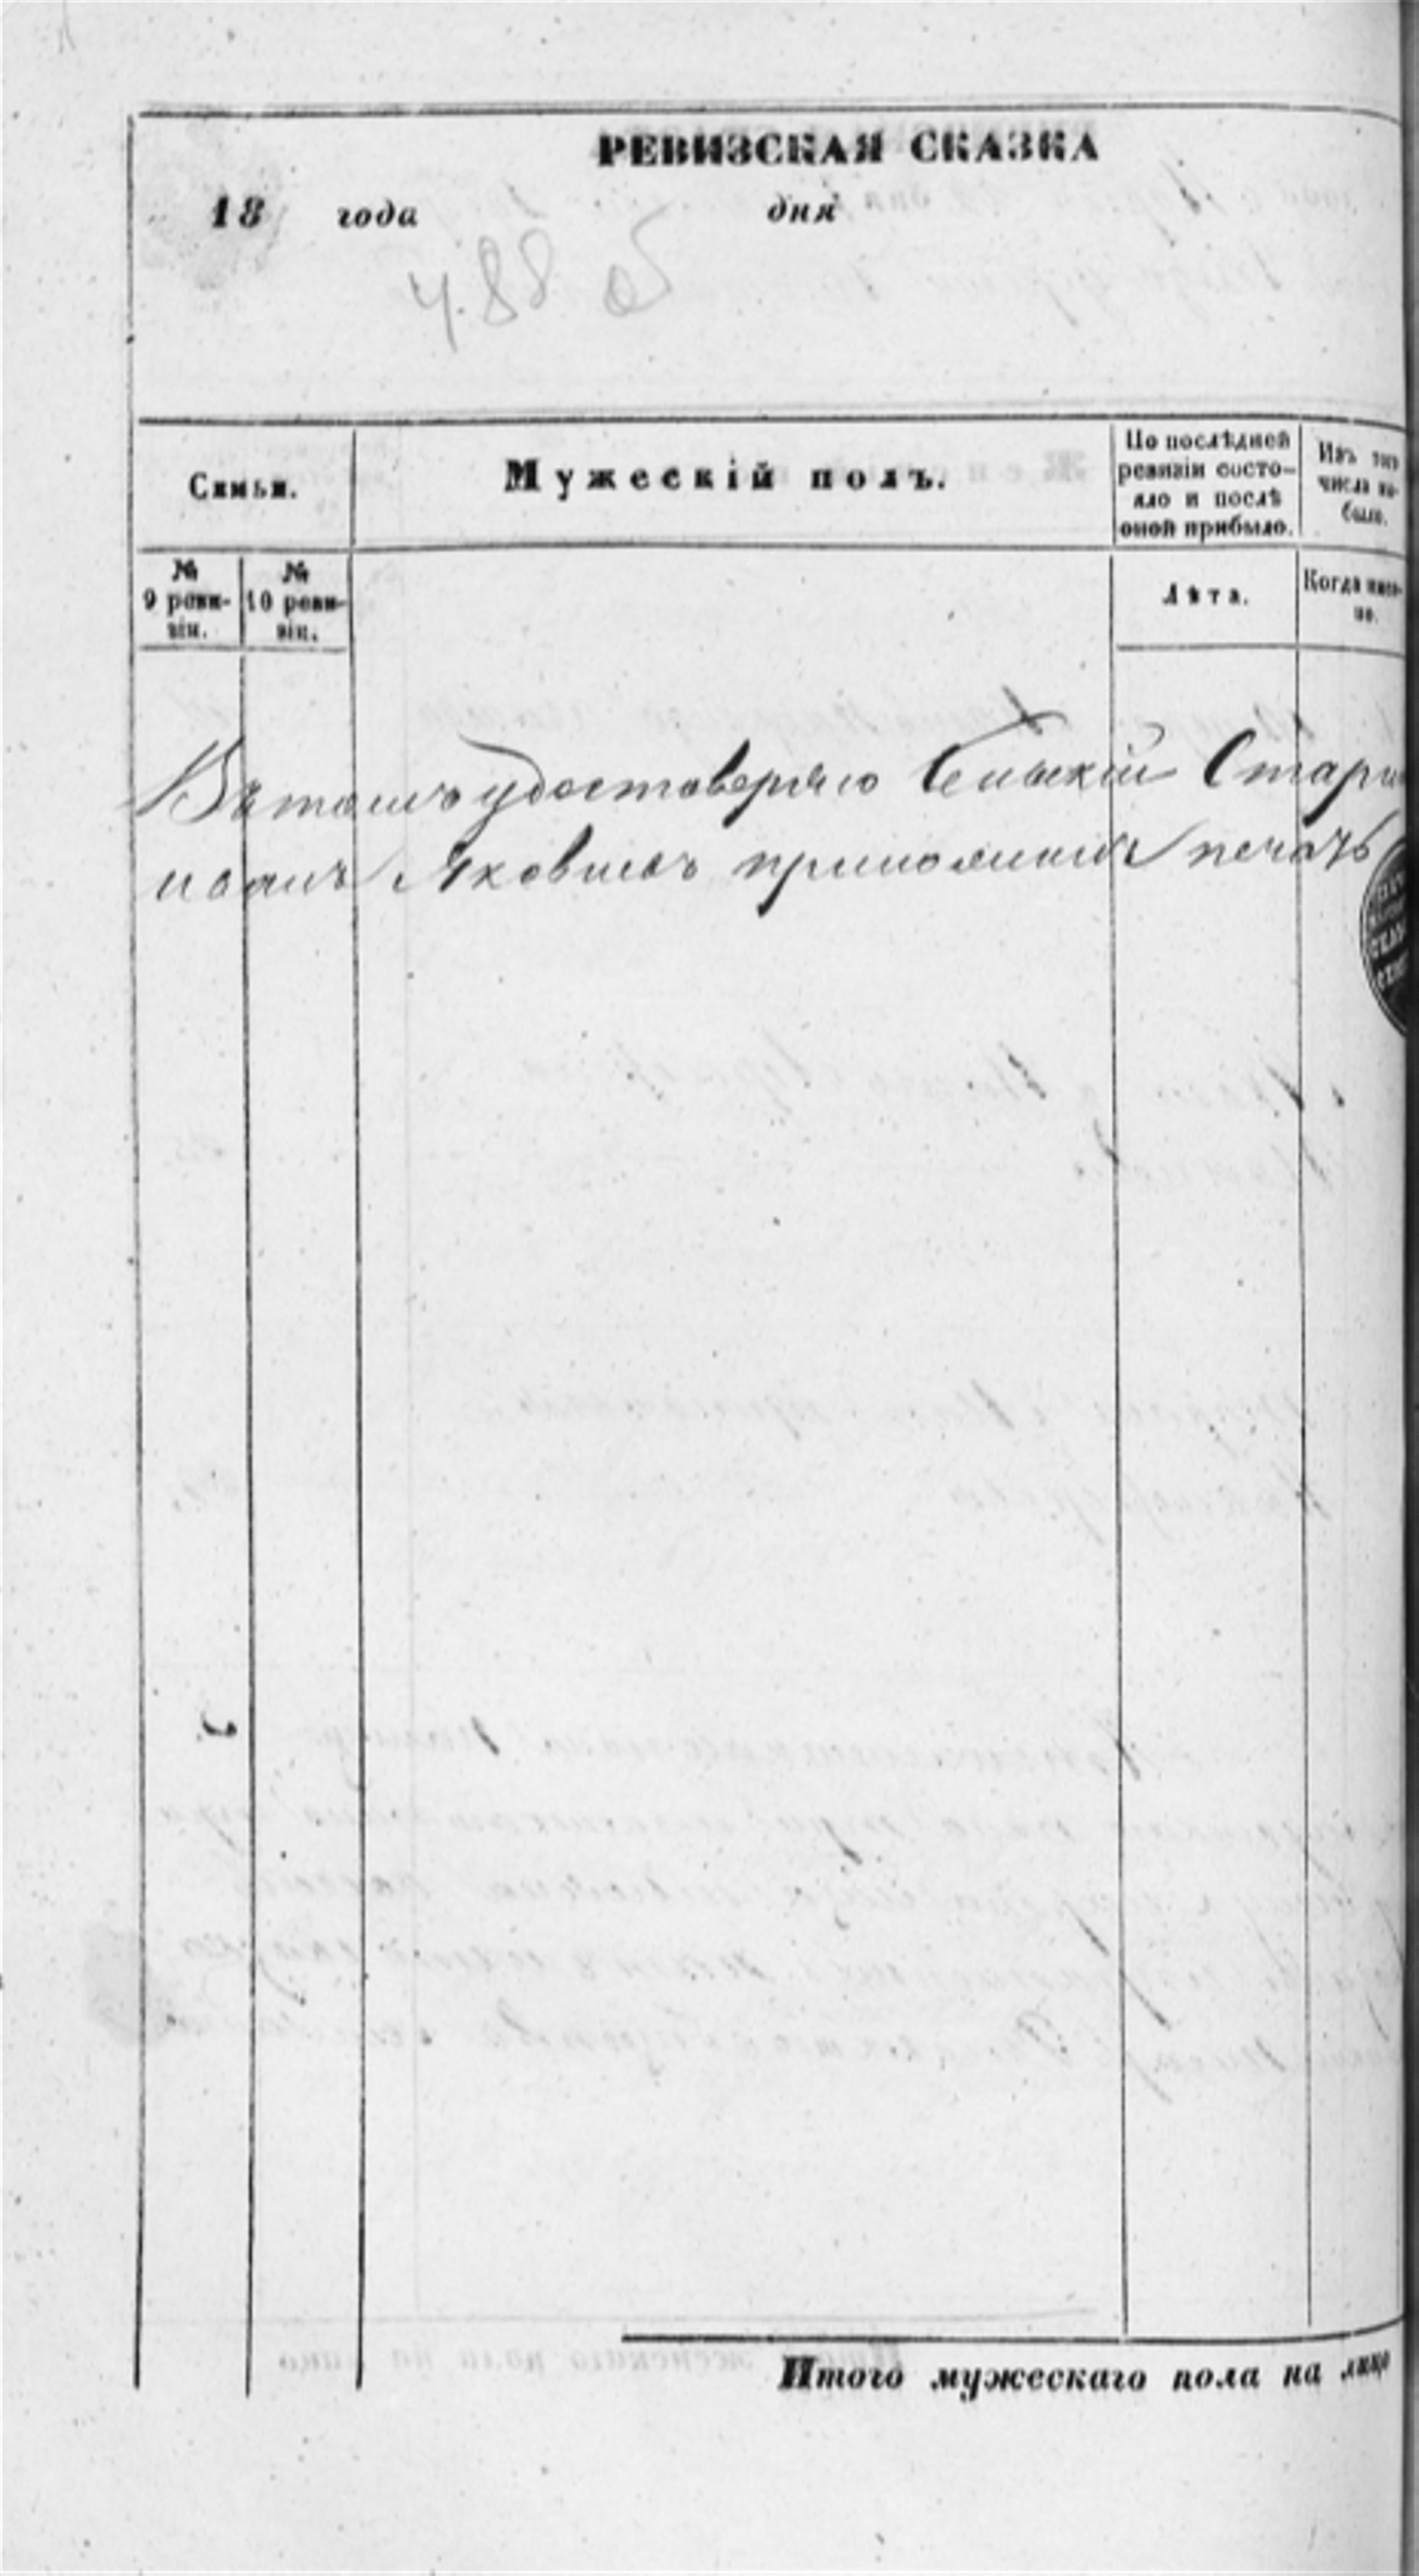 РЕВИЗСКАЯ СКАЗКА
18 года дня
ч. 88 об
Семьи.
Мужескій полъ.
По послѣдней
ревизіи состо-
яло и послѣ
оной прибыло.
Изъ того
числа вы-
было.
№
9 реви-
зіи.
№
10 реви-
зіи.
Лѣта.
Когда имен-
но.
Вътомъ удостоверяю Сельскій Стари
иванъ Яковлевъ приложилъ печать
Итого мужескаго пола на лицо